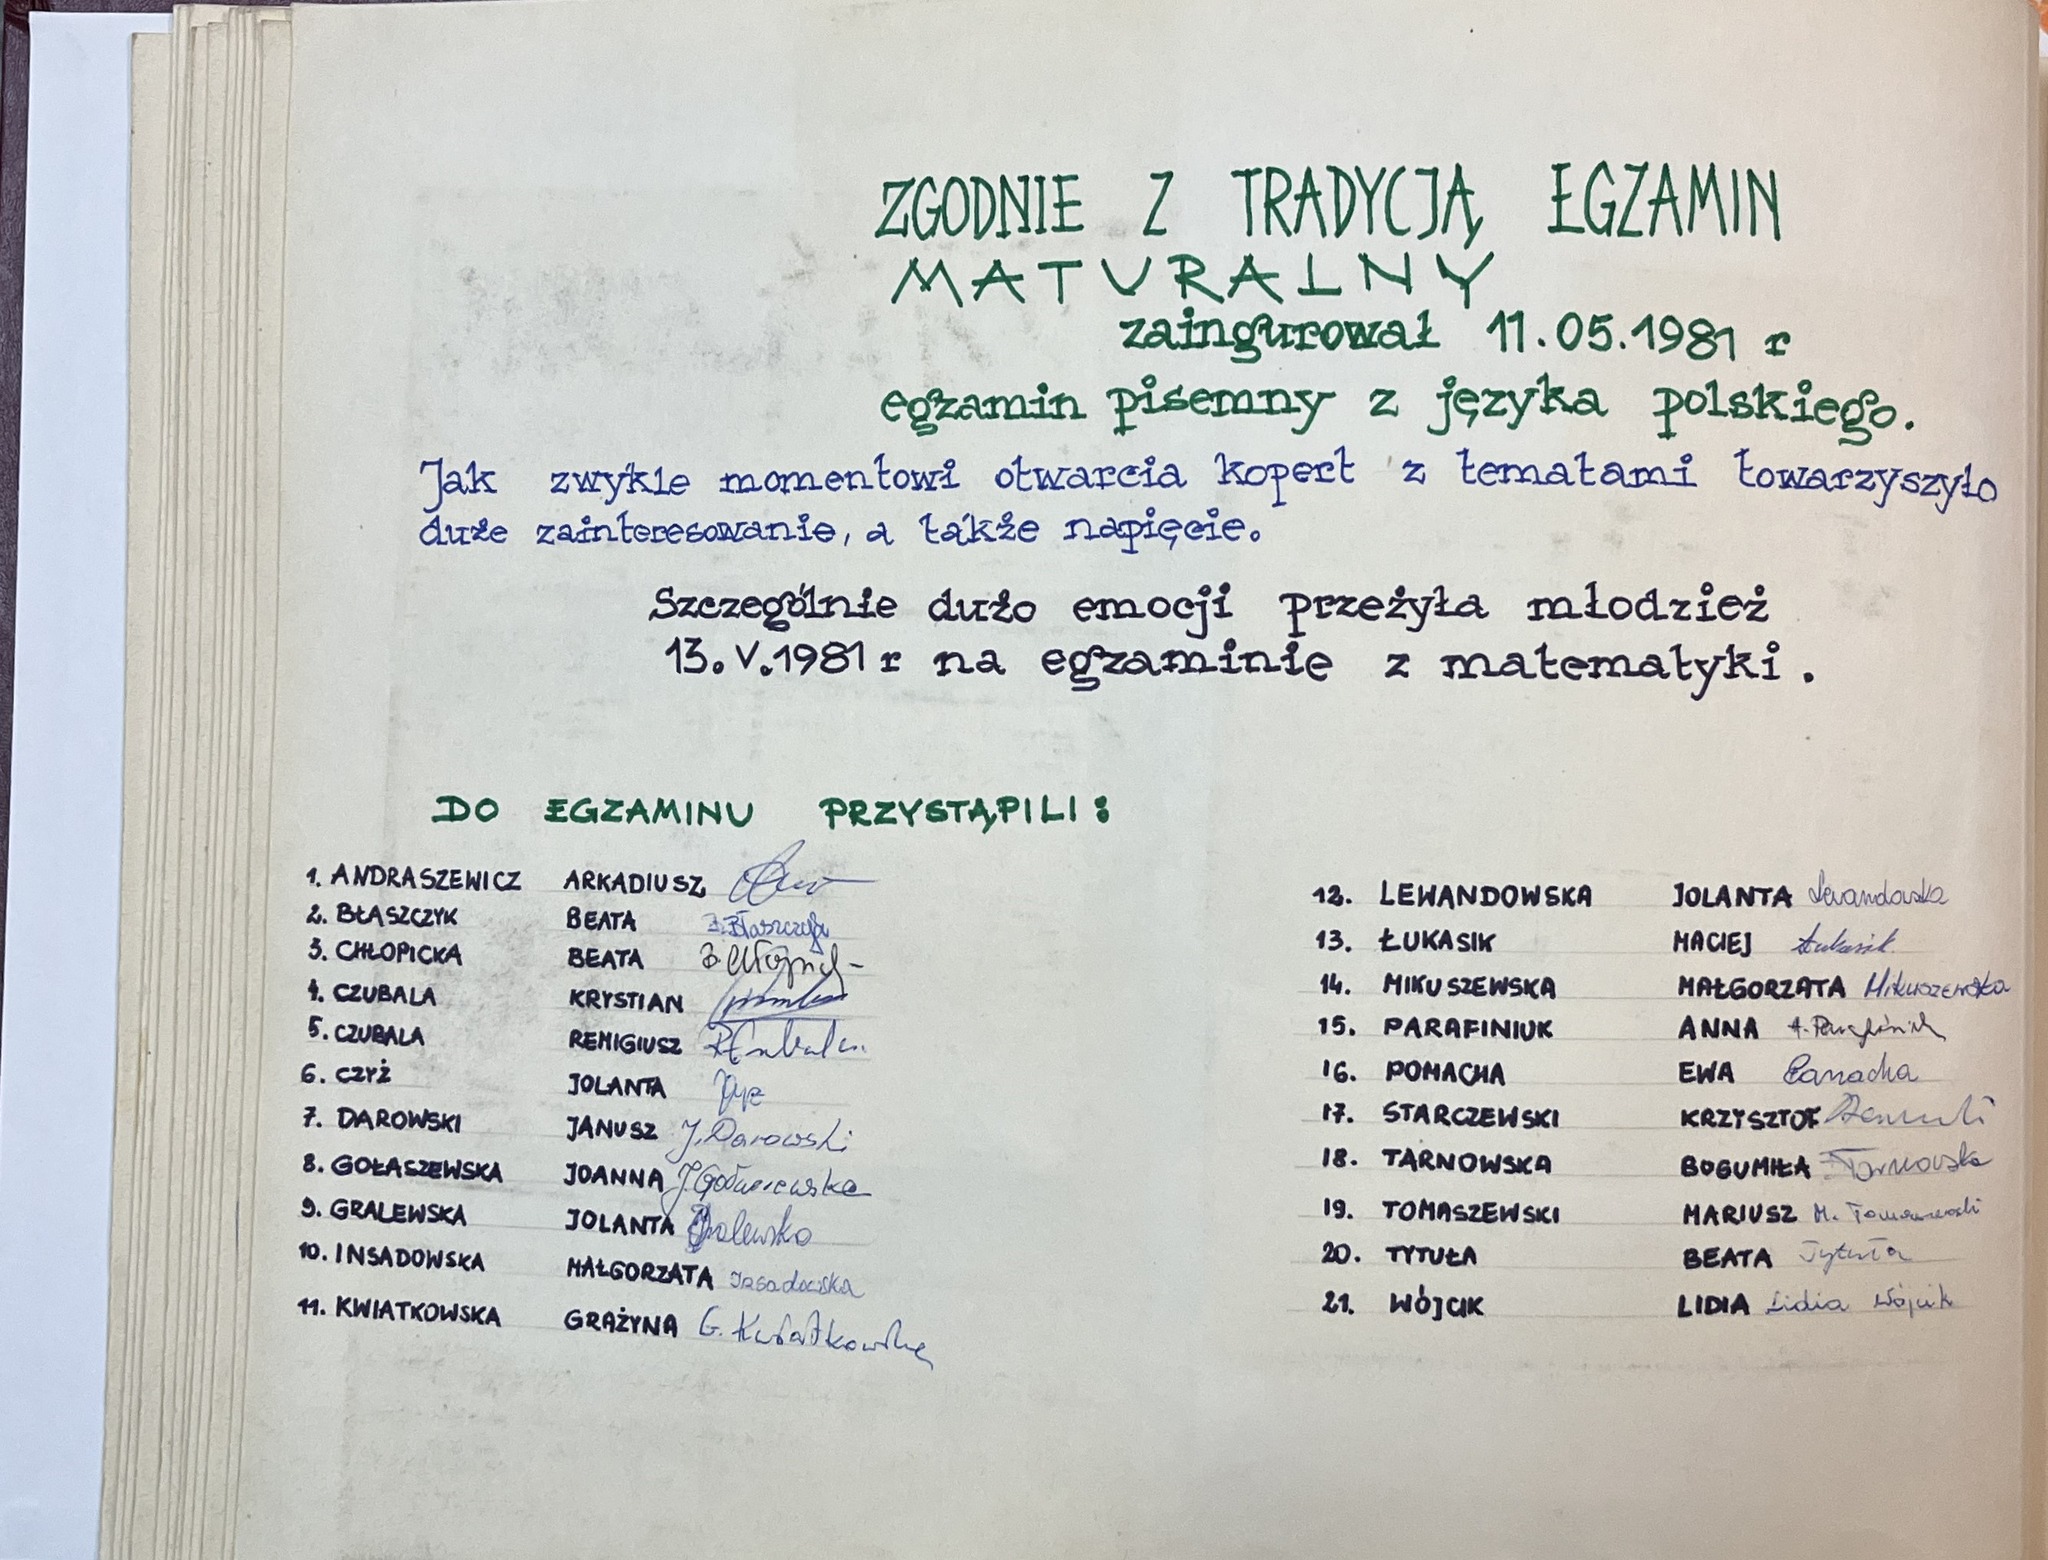 ZGODNIE Z TRADYCJĄ EGZAMIN
MATURALNY
zaingurował 11.05.1981 r
egzamin pisemny z języka polskiego.
Jak zwykle momentowi otwarcia kopert z tematami towarzyszyło
duże zainteresowanie, a także napięcie.
Szczególnie dużo emocji przeżyła młodzież
13.V.1981 r na egzaminie z matematyki.
DO EGZAMINU PRZYSTĄPILI:
1. ANDRASZEWICZ ARKADIUSZ
2. BŁASZCZYK BEATA B. Błaszczyk
3. CHŁOPICKA BEATA
4. CZUBALA KRYSTIAN
5. CZUBALA REMIGIUSZ
6. CZYŻ JOLANTA
7. DAROWSKI JANUSZ J. Darowski
8. GOŁASZEWSKA JOANNA J. Gołaszewska
9. GRALEWSKA JOLANTA Gralewska
10. INSADOWSKA MAŁGORZATA Insadowska
11. KWIATKOWSKA GRAŻYNA G. Kwiatkowska
12. LEWANDOWSKA JOLANTA Lewandowska
13. ŁUKASIK MACIEJ Łukasik
14. MIKUSZEWSKA MAŁGORZATA Mikuszewska
15. PARAFINIUK ANNA A. Parafiniuk
16. POMACHA EWA
17. STARCZEWSKI KRZYSZTOF
18. TARNOWSKA BOGUMIŁA Tarnowska
19. TOMASZEWSKI MARIUSZ M. Tomaszewski
20. TYTUŁA BEATA Tytuła
21. WÓJCIK LIDIA Lidia Wójcik